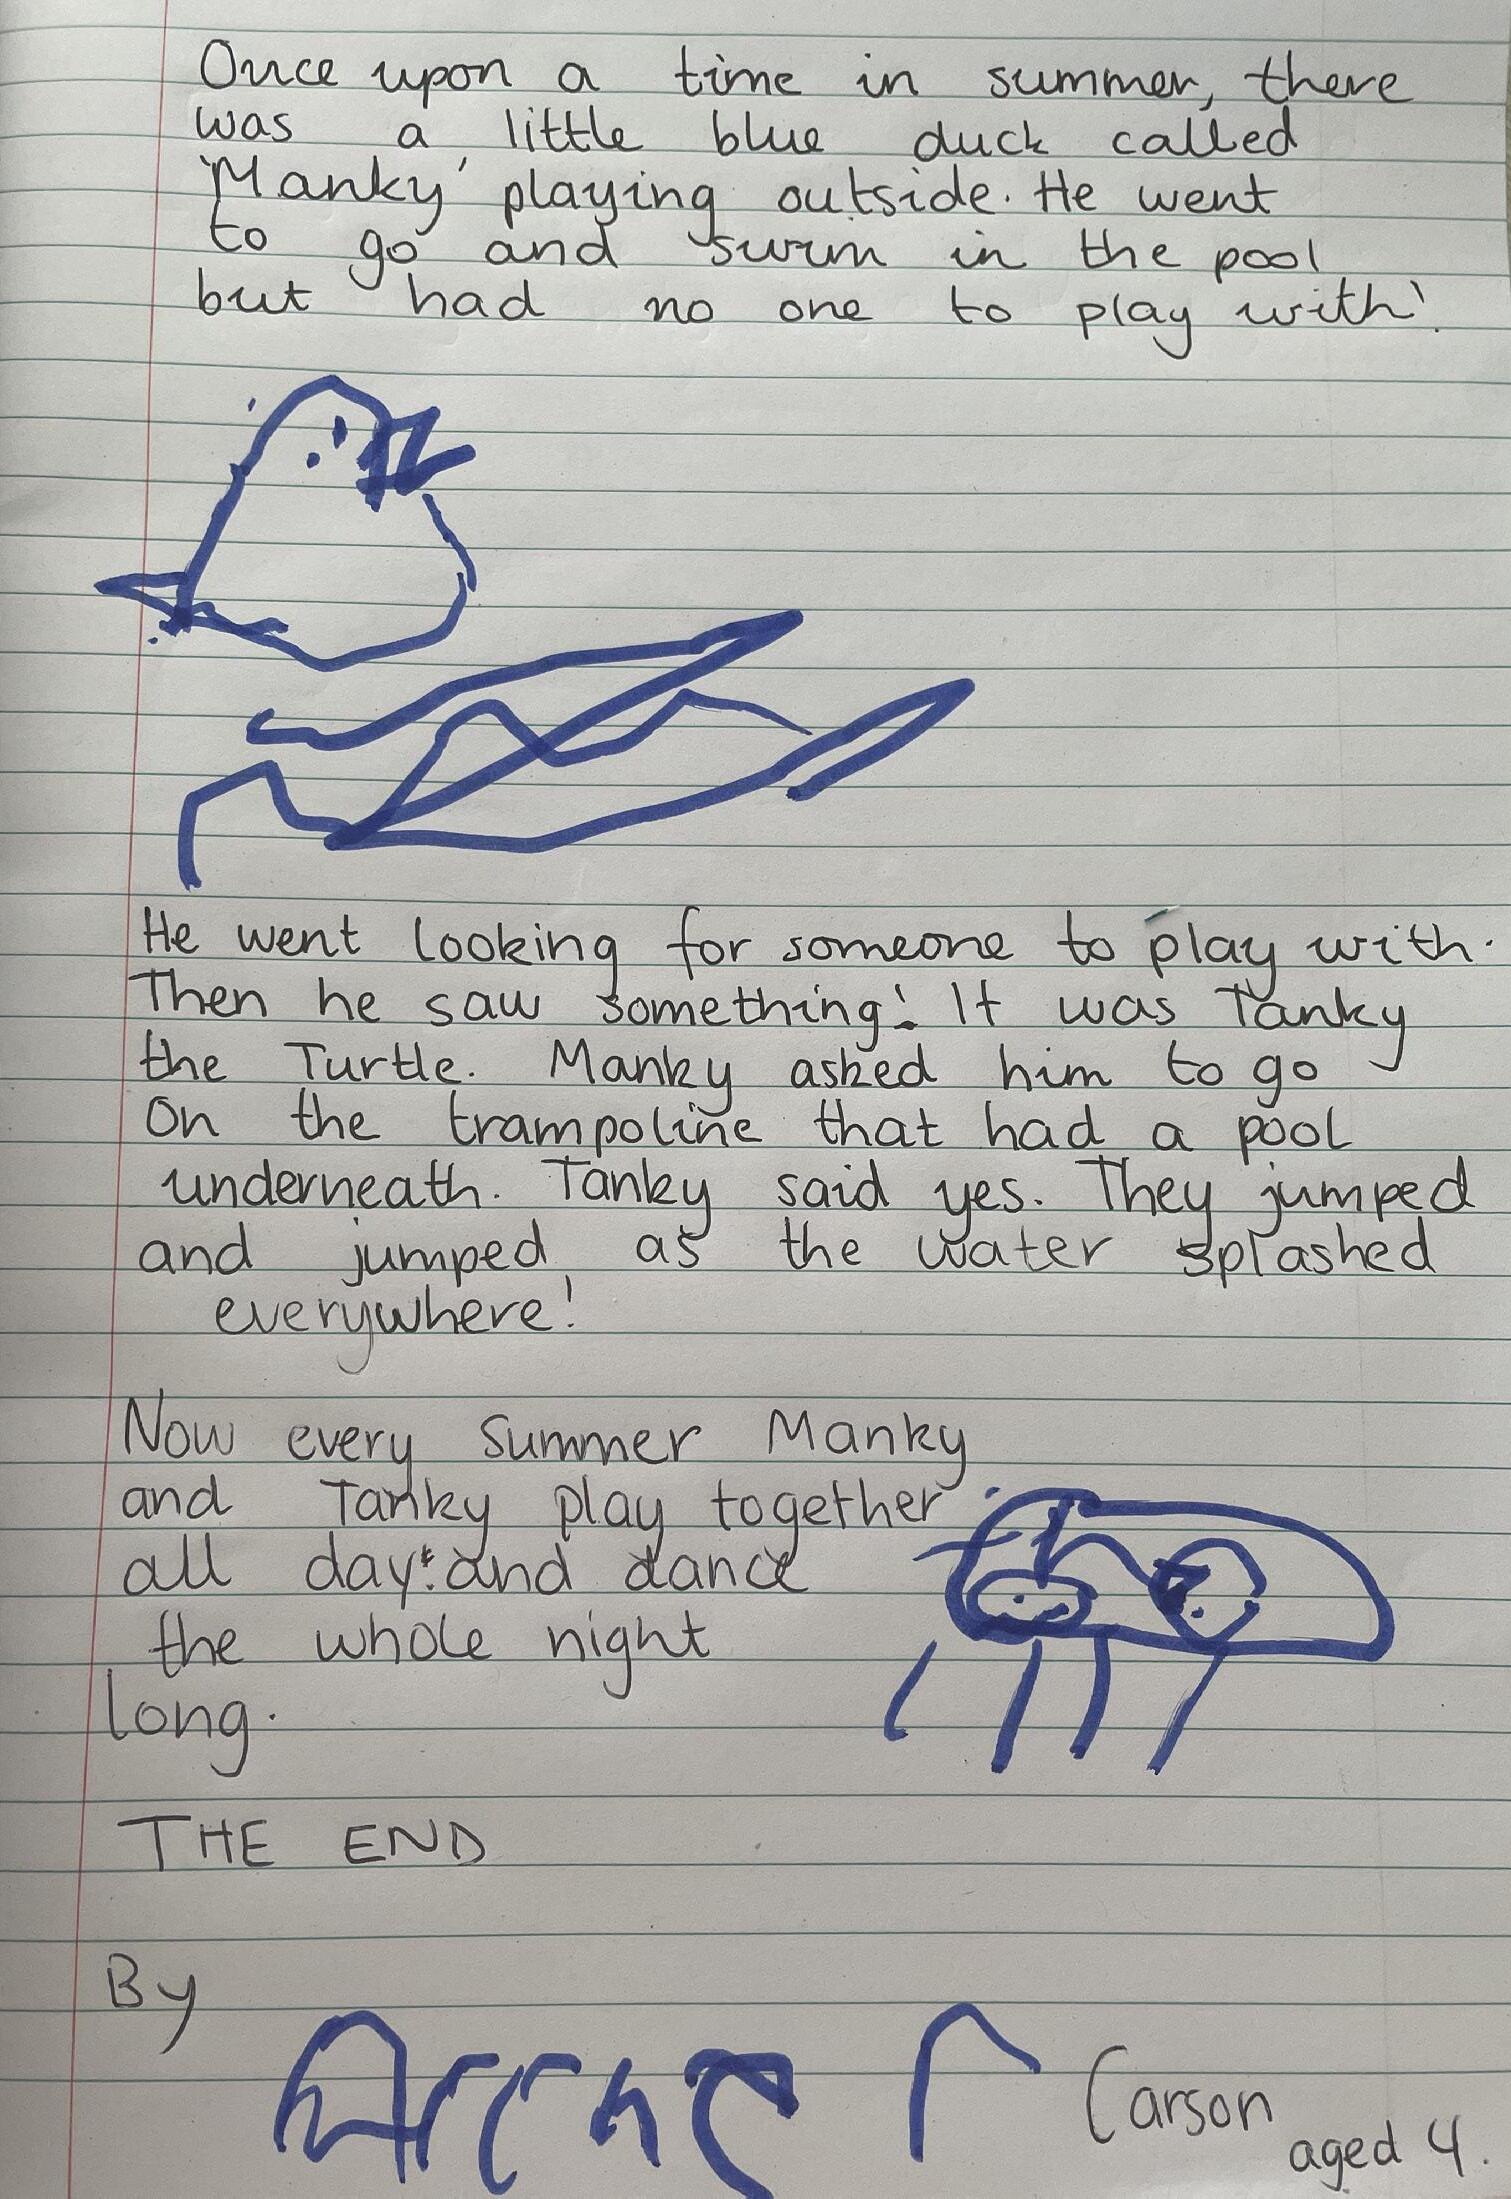 Once upon a time in summer, there
was a little blue duck called
'Manky' playing outside. He went
to go and swim in the pool
but had no one to play with!
He went looking for someone to play with.
Then he saw something! It was Tanky
the Turtle. Manky asked him to go
on the trampoline that had a pool
underneath. Tanky said yes. They jumped
and jumped as the water splashed
everywhere!
Now every summer Manky
and Tanky play together
all day and dance
the whole night
long.
THE END
By
Carson
aged 4.